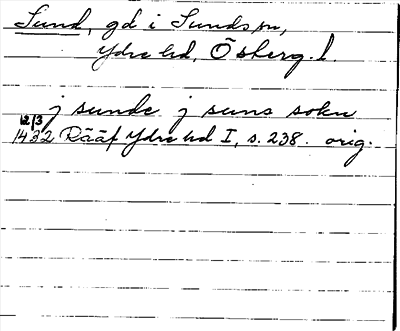 Sund, gd i Sunds sn,
Ydre hd, Österg. l.
j sunde j suns sokn
12/3
1432 Rääf Ydre hd I, s. 238. orig.